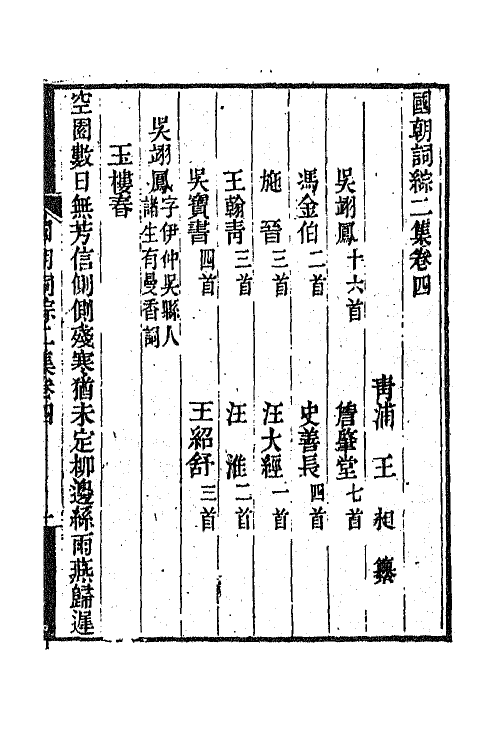 國朝詞綜二集卷四
青浦 王 昶 纂
吳翊鳳十六首 詹肇堂七首
馮金伯二首 史善長四首
施 晉三首 汪大經一首
王翰青三首 汪 淮二首
吳寶書四首 王紹舒三首
吳翊鳳字伊仲吳縣人
諸生有曼香詞
玉樓春
空園數日無芳信側側殘寒猶未定柳邊絲雨燕歸遲
國朝詞綜二集卷四 一